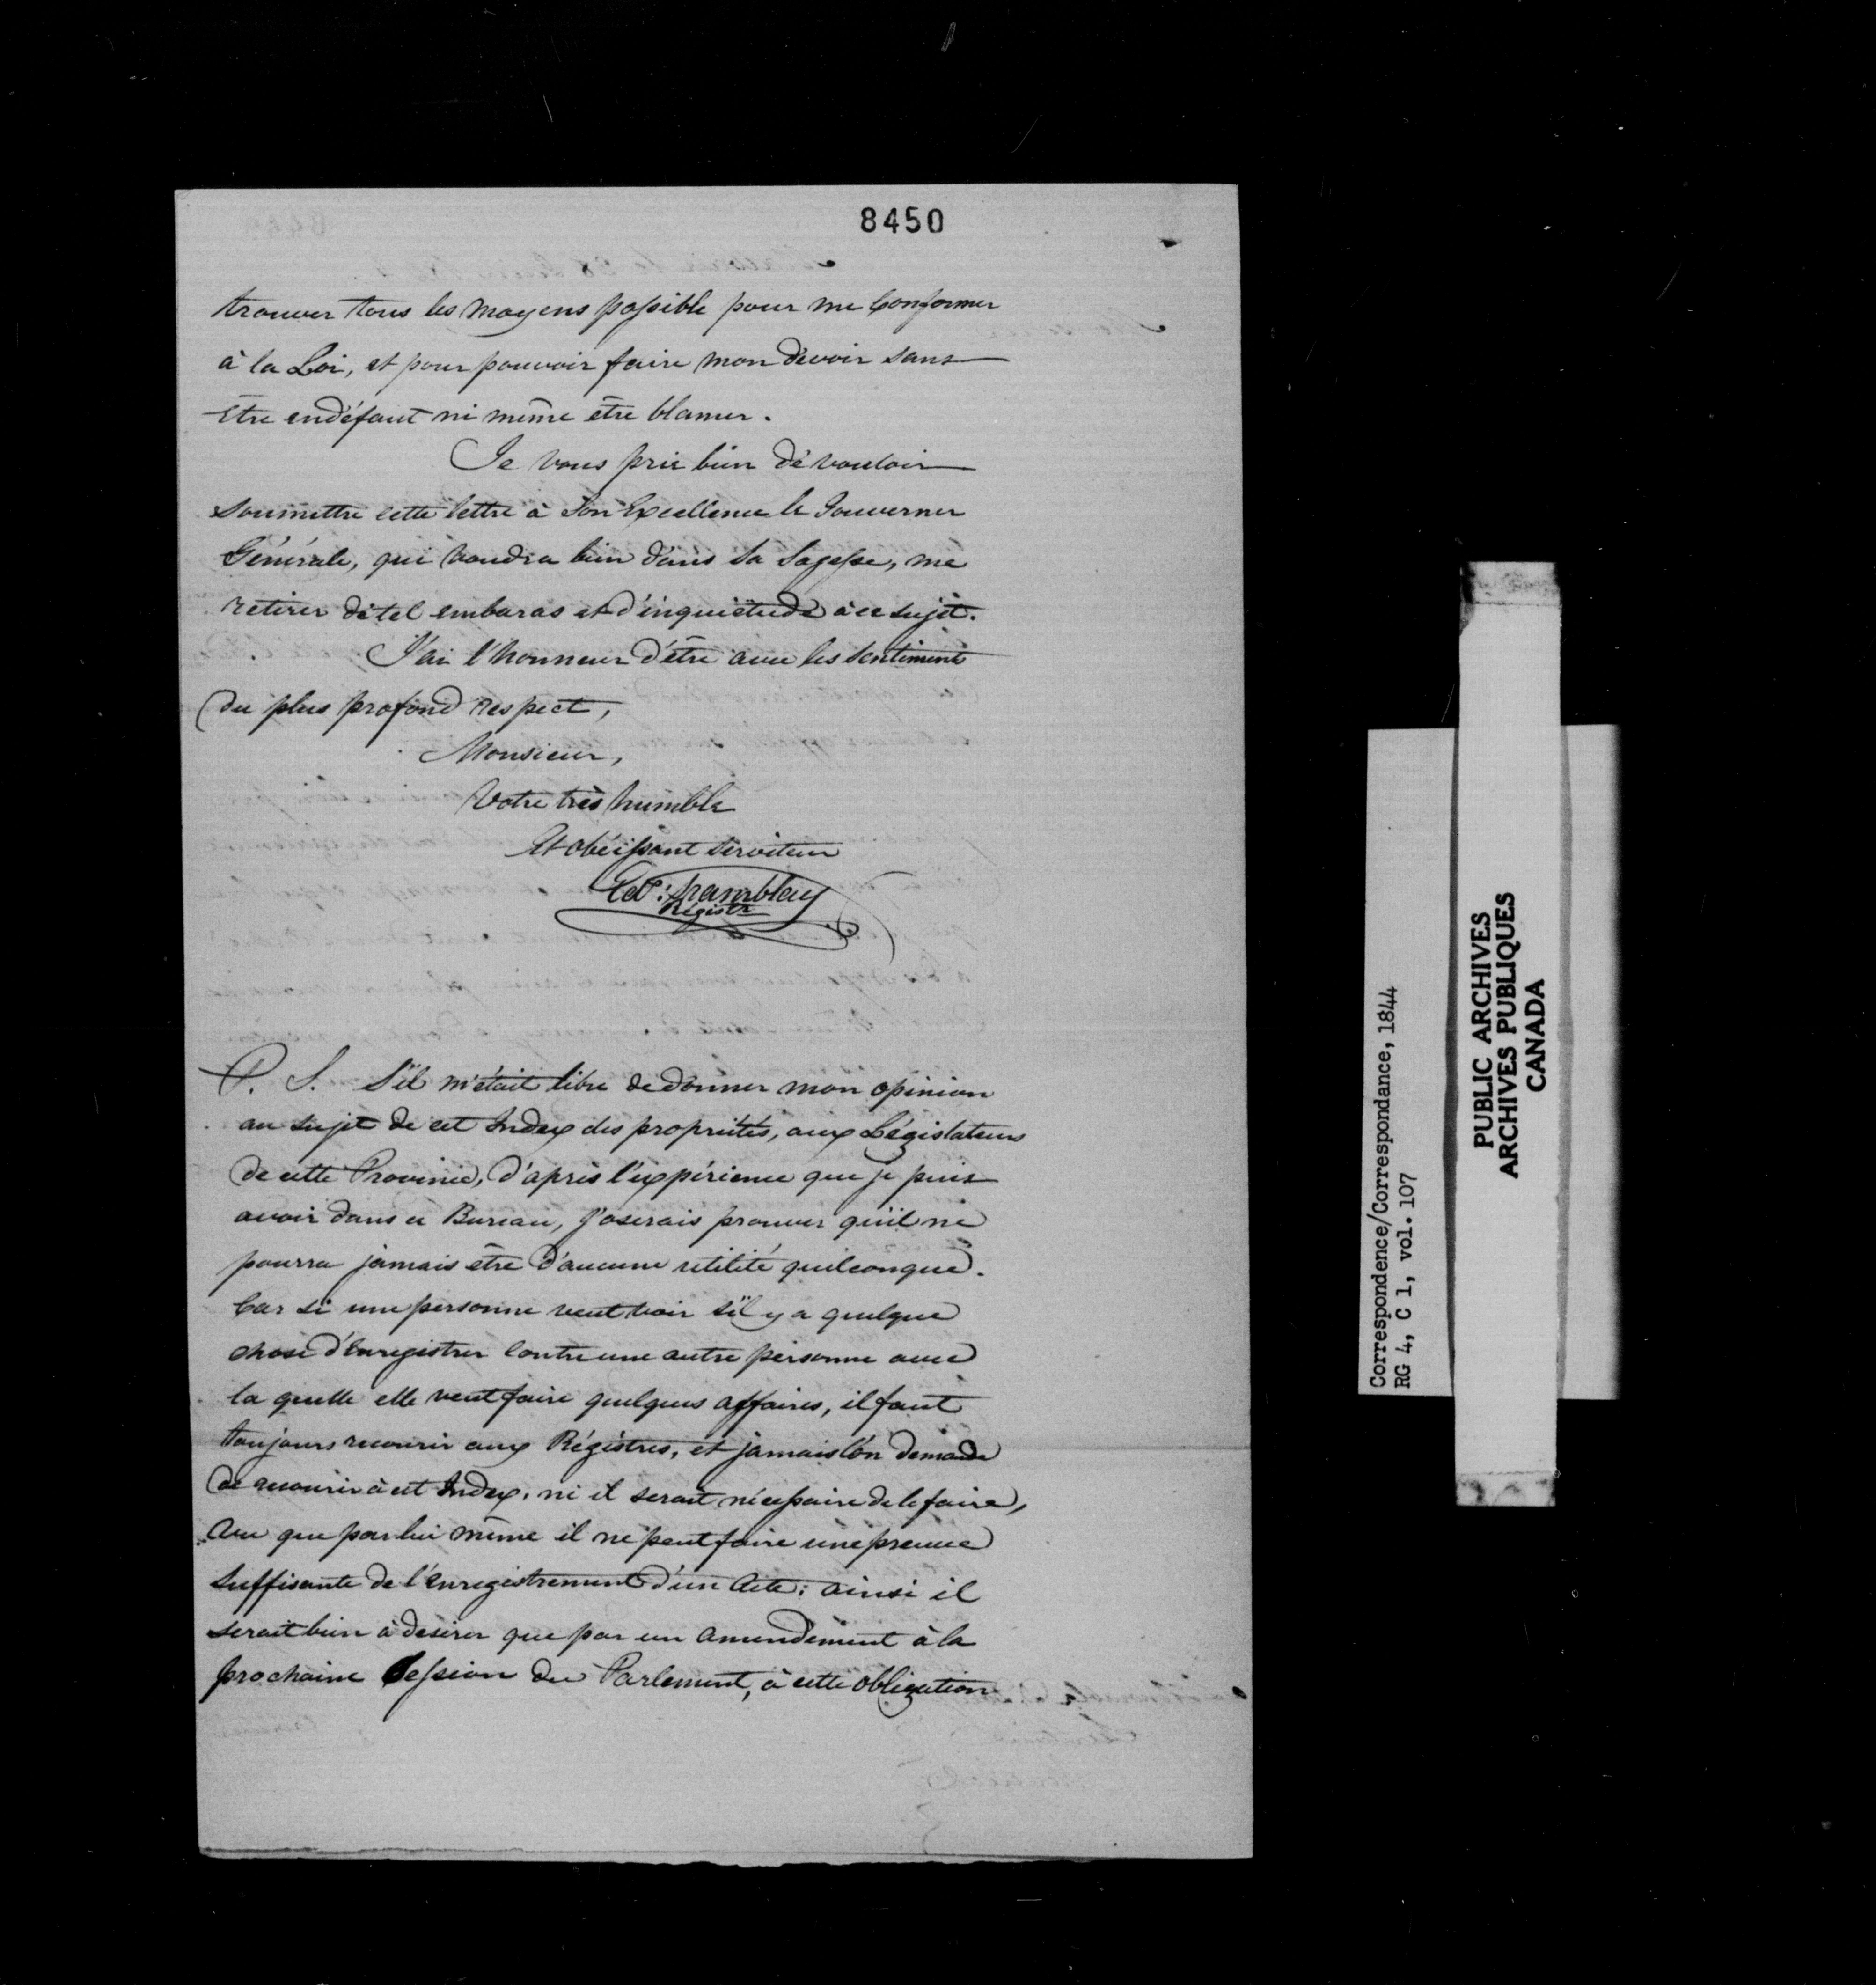 8450
trouver tous les moyens possible pour me Conformer
à la Loi, et pour pouvoir faire mon dévoir sans
être endéfaut ni même être blamer.
Je vous prie bien dé vouloir
soumettre cette lettre à Son Excellence le Gouverner
Générale, qui voudra bien dans Sa Sagesse, me
retirer dé tel embaras et d'inquiétude à ce sujet.
J'ai l'honneur d'être avec les sentiments
du plus profond respect,
Monsieur,
Votre très humble
Et obéissant serviteur
Ed: Tremblay
Régistr
P. S. S'il m'était libre de donner mon opinion
au sujet de cet Index des propriétés, aux Législateurs
de cette Province, d'après l'expérience que je puis
avoir dans ce Bureau, j'oserais prouver qu'il ne
pourra jamais être d'aucune utilité quilconque.
Car si une personne veut voir s'il y a quelque
chose d'Enregistrer Contre une autre personne avec
la quelle elle veut faire quelques affaires, il faut
toujours recourir aux Régistres, et jamais l'on demande
de recourir à cet Index, ni il serait nécessaire de le faire,
vu que par lui même il ne peut faire une preuve
suffisante de l'Enregistrement d'un Acte: ainsi il
serait bien à désirer que par un amendement à la
prochaine Session du Parlement, à cette obligation
Correspondence/Correspondance, 1844
RG 4, C 1, vol. 107
PUBLIC ARCHIVES
ARCHIVES PUBLIQUES
CANADA